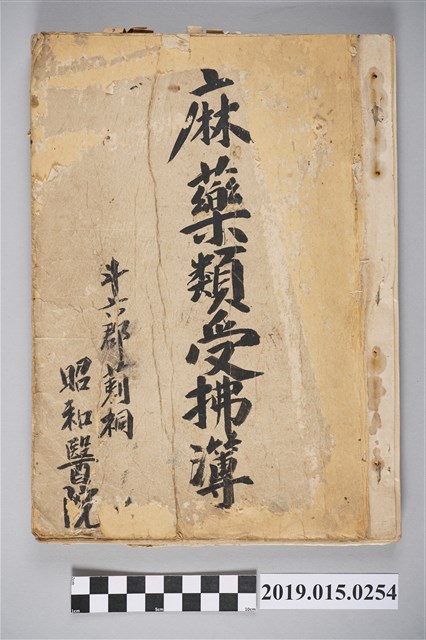 麻藥類受拂簿
斗六郡莿桐
昭和醫院
1cm 5cm 10cm
2019.015.0254